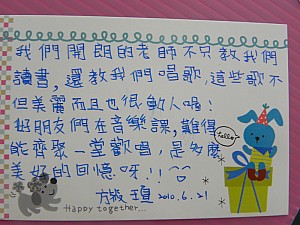 我們開朗的老師不只教我們
讀書,還教我們唱歌,這些歌不
但美麗而且也很動人喔!
好朋友們在音樂課,難得
能齊聚一堂歡唱,是多麼
美好的回憶呀!!
hello~
2010.6.21
Happy together...